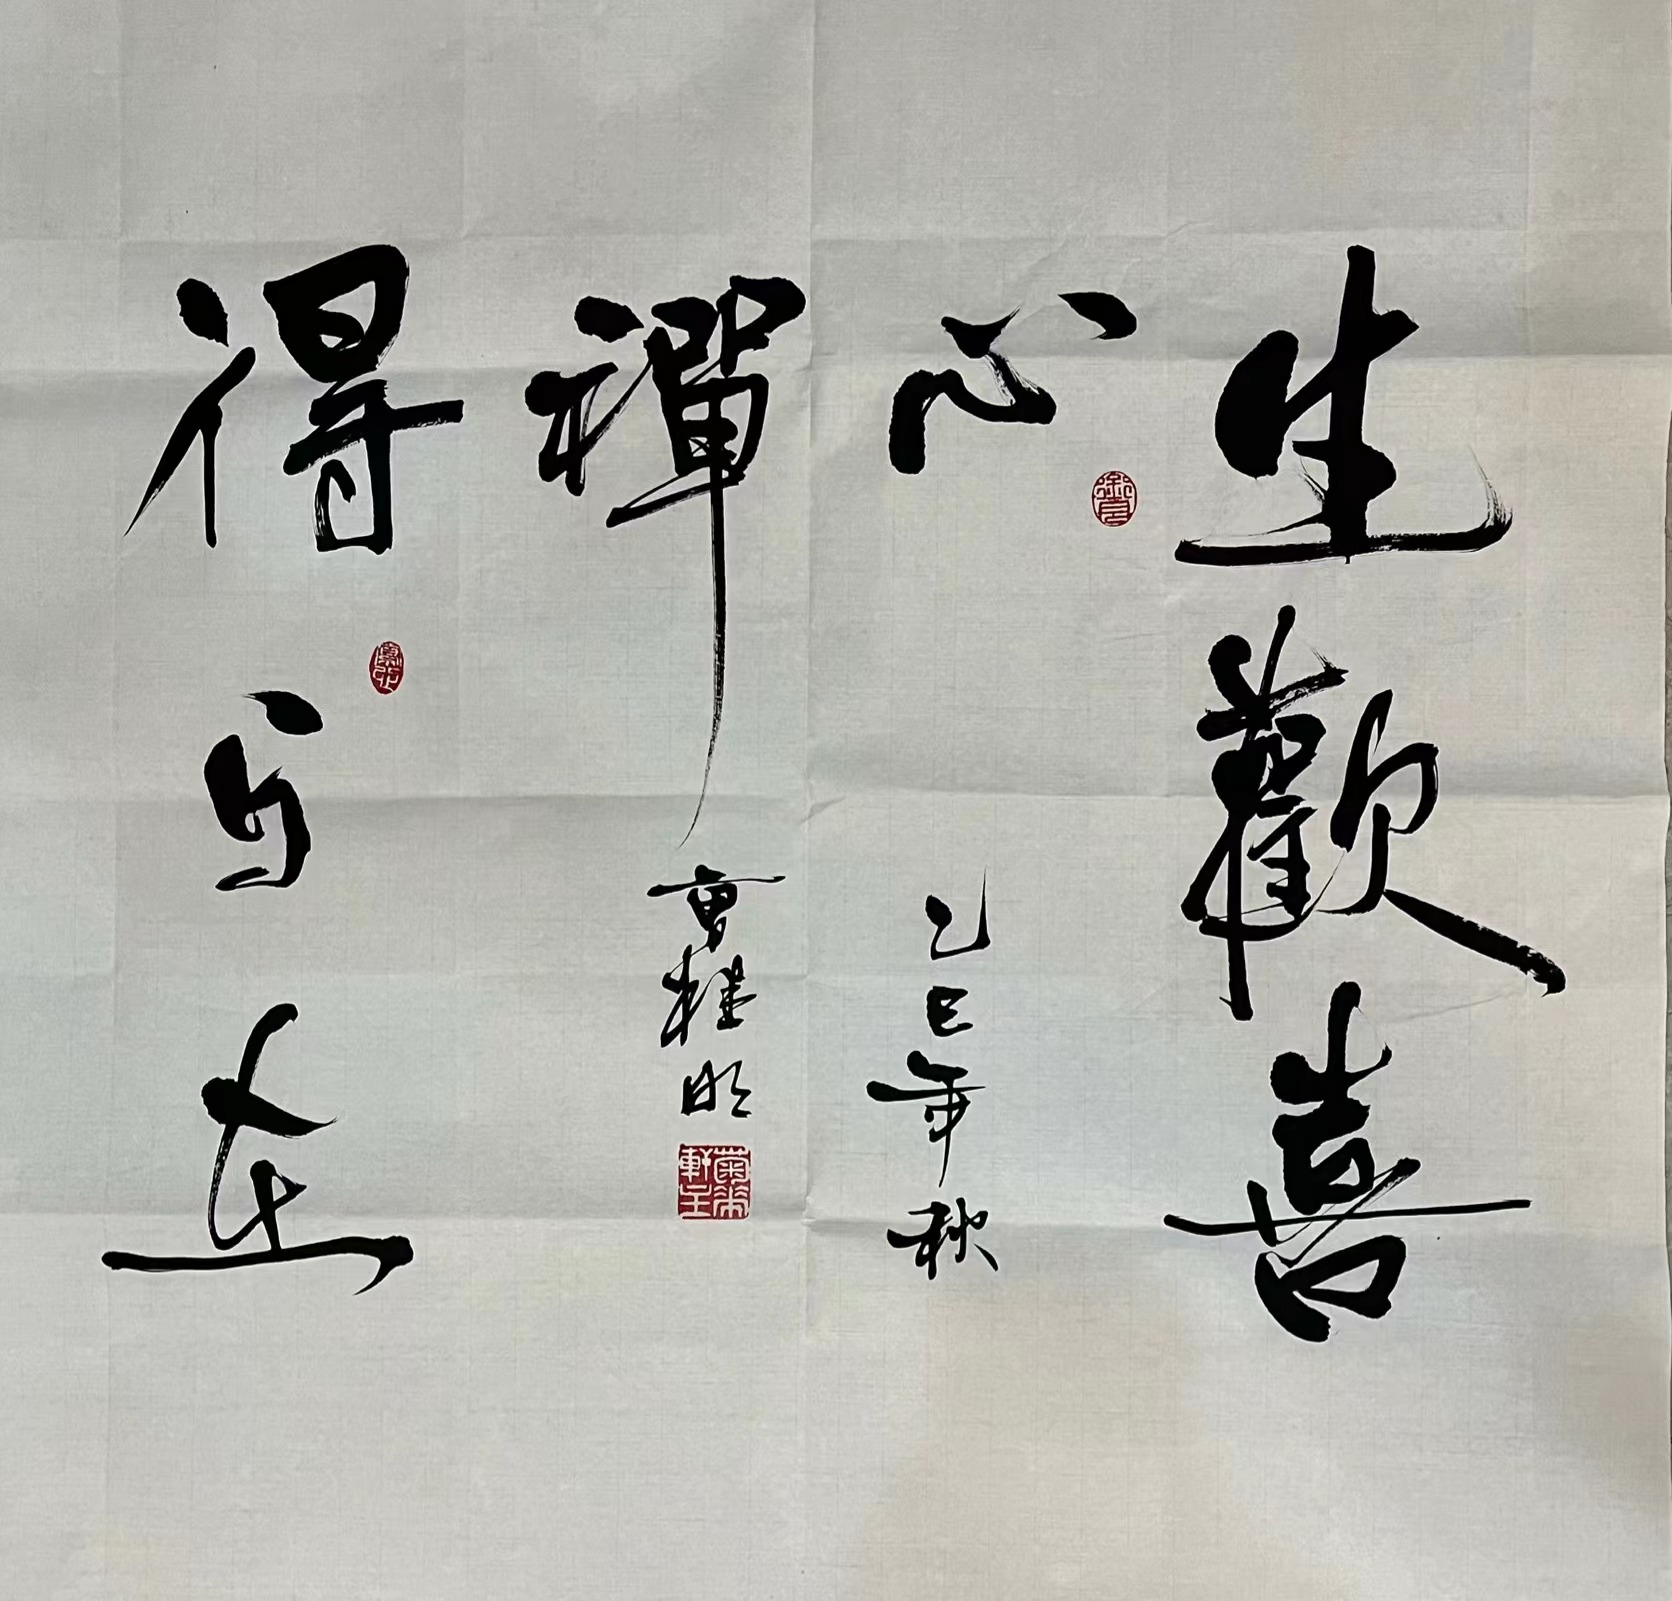 生歡喜
心
乙巳年秋
禪
曹 明
軒主
得自在